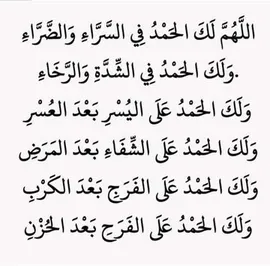 اللَّهُمَّ لَكَ الحَمْدُ فِي السَّرَّاءِ وَالضَّرَّاءِ
.وَلَكَ الحَمْدُ فِي الشِّدَّةِ وَالرَّخَاءِ
وَلَكَ الحَمْدُ عَلَى اليُسْرِ بَعْدَ العُسْرِ
وَلَكَ الحَمْدُ عَلَى الشِّفَاءِ بَعْدَ المَرَضِ
وَلَكَ الحَمْدُ عَلَى الفَرَجِ بَعْدَ الكَرْبِ
وَلَكَ الحَمْدُ عَلَى الفَرَحِ بَعْدَ الحُزْنِ